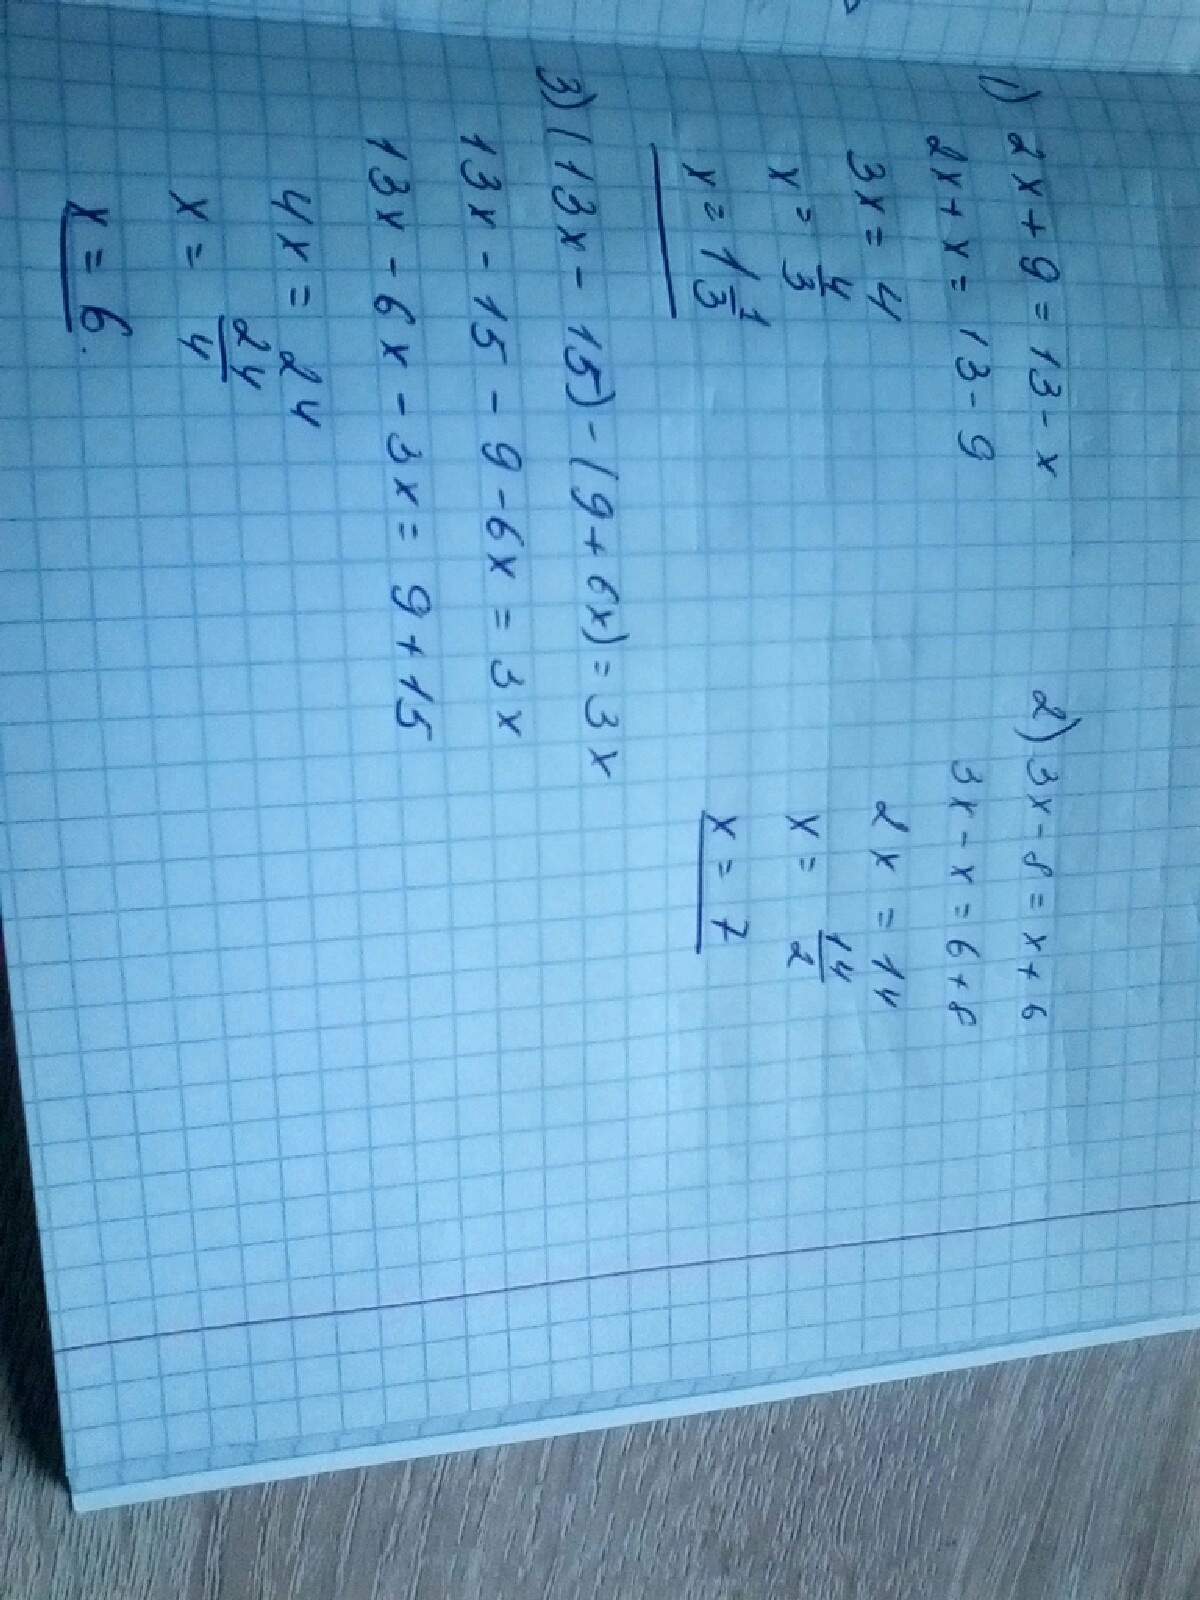 1) 2x + 9 = 13 - x
2x + x = 13 - 9
3x = 4
x = 4/3
x = 1 1/3
2) 3x - 8 = x + 6
3x - x = 6 + 8
2x = 14
x = 14/2
x = 7
3) (13x - 15) - (9 + 6x) = 3x
13x - 15 - 9 - 6x = 3x
13x - 6x - 3x = 9 + 15
4x = 24
x = 24/4
x = 6.